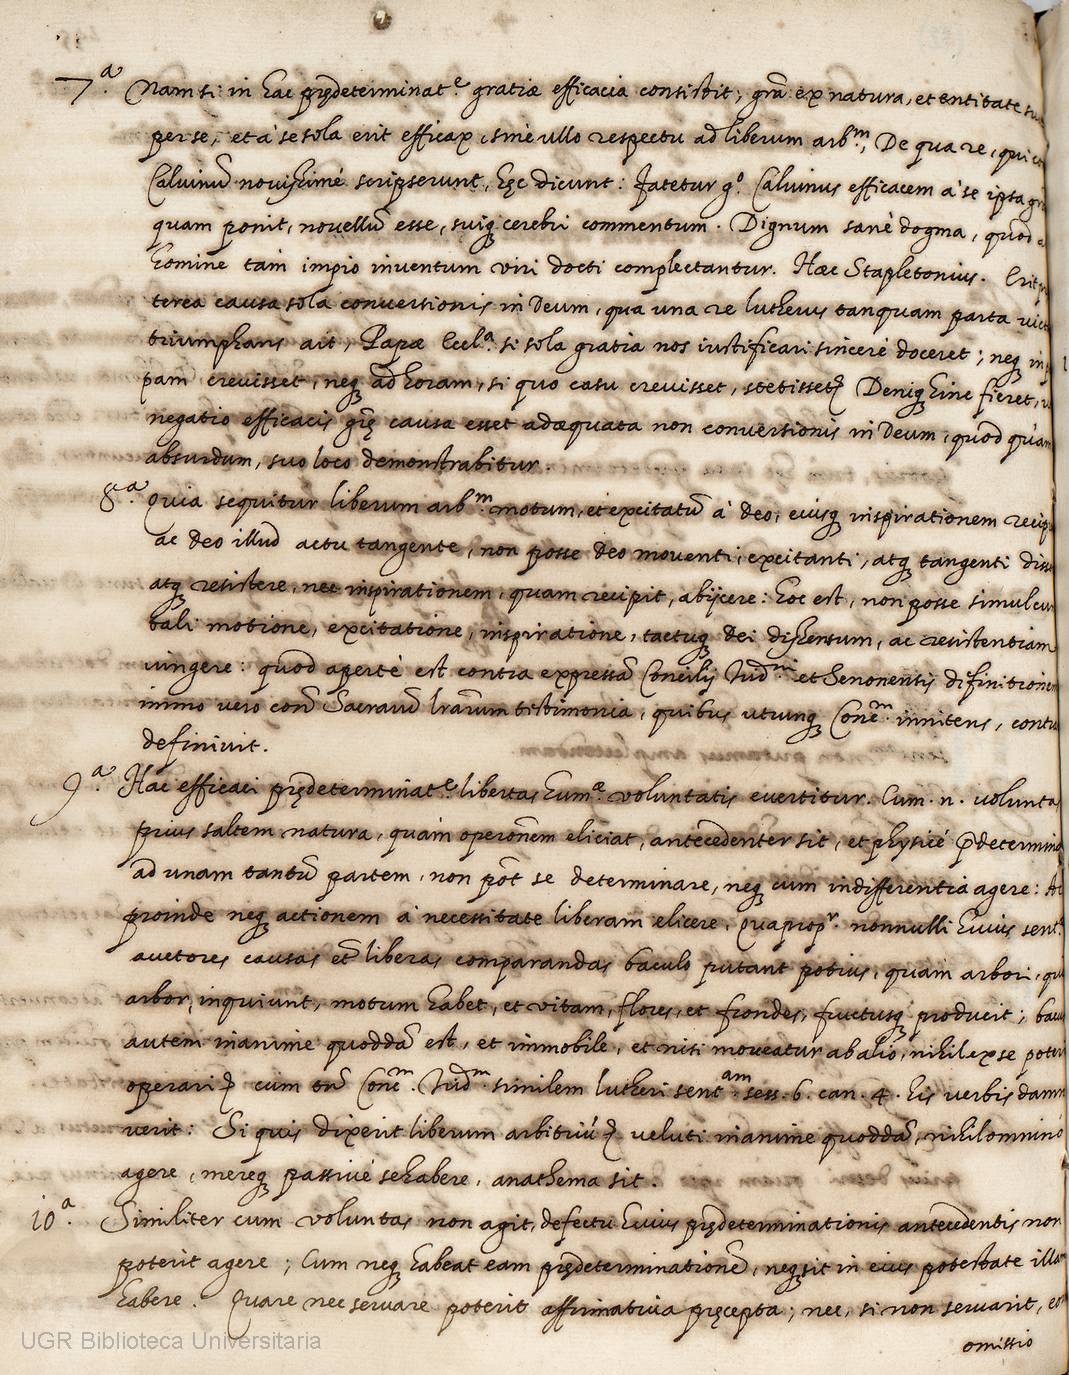 7.ª Nam si in hac prędeterminat.e gratiæ efficacia consistit; grã ex natura, et entitate su
per se, et à se sola erit efficax, sine ullo respectu ad liberum arb.m; De qua re, qui
Caluinũ nouissimè scripserunt, hęc dicunt: Fatetur g.o Caluinus efficacem à se ipsa gr
quam ponit, nouellũ esse, suiq; cerebri commentum. Dignum sanè dogma, quod
homine tam impio inuentum viri docti complectantur. Hæc Stapletonius. Erit
terea causa sola conuersionis in Deum, qua una re lutherus tanquam parta
triumphans ait, Papæ Eccl.ª si sola gratia nos iustificari sincerè doceret; neq;
pam creuisset, neq; ad horam, si quo casu creuisset, stetisset. Deniq; hinc fieret,
negatio efficacis grę causa esset adæquata non conuersionis in Deum, quod
absurdum, suo loco demonstrabitur.
8.ª Quia sequitur liberum arb.m motum, et excitatũ à Deo, eiusq; inspirationem recip
ac Deo illud actu tangente, non posse Deo mouenti, excitanti, atq; tangenti diss
atq; resistere, nec inspirationem, quam recipit, abijcere: hoc est, non posse simul cum
tali motione, excitatione, inspiratione, tactuq; Dei dissensum, ac resistentiam
iungere: quod apertè est contra expressã Concilij Trid.ni et Senonensis difinitionem
immo vero conẽ Sacrarũ lrarum testimonia, quibus utrunq; Conẽm innitens,
definiuit.
9.ª Hac efficaci prędeterminat.e libertas hum.ª voluntatis euertitur. Cum .n. volunta
prius saltem natura, quàm operõnem eliciat, antecedenter sit, et physicè p̃determin
ad unam tantũ partem, non põt se determinare, neq; cum indifferentia agere:
proinde neq; actionem à necessitate liberam elicere. Quaprop.r nonnulli huius sent.
auctores causas et̃ liberas comparandas baculo putant potius, quàm arbori,
arbor, inquiunt, motum habet, et vitam, flores, et frondes, fructusq; producit;
autem inanime quoddã est, et immobile, et nisi moueatur ab alio, nihil ex se
operari cum tñ Conẽm Trid.m similem lutheri sent.am sess. 6. can. 4. his verbis damn
verit: Si quis dixerit liberum arbitriũ veluti inanime quoddã, nihil omnino
agere, mereq; passiuè se habere, anathema sit.
10.ª Similiter cum voluntas non agit, defectu huius prędeterminationis antecedentis non
poterit agere; Cum neq; habeat eam prędeterminationẽ, neq; sit in eius potestate illam
habere. Quare nec seruare poterit affirmatiua pręcepta; nec, si non seruarit,
omissio
UGR Biblioteca Universitaria